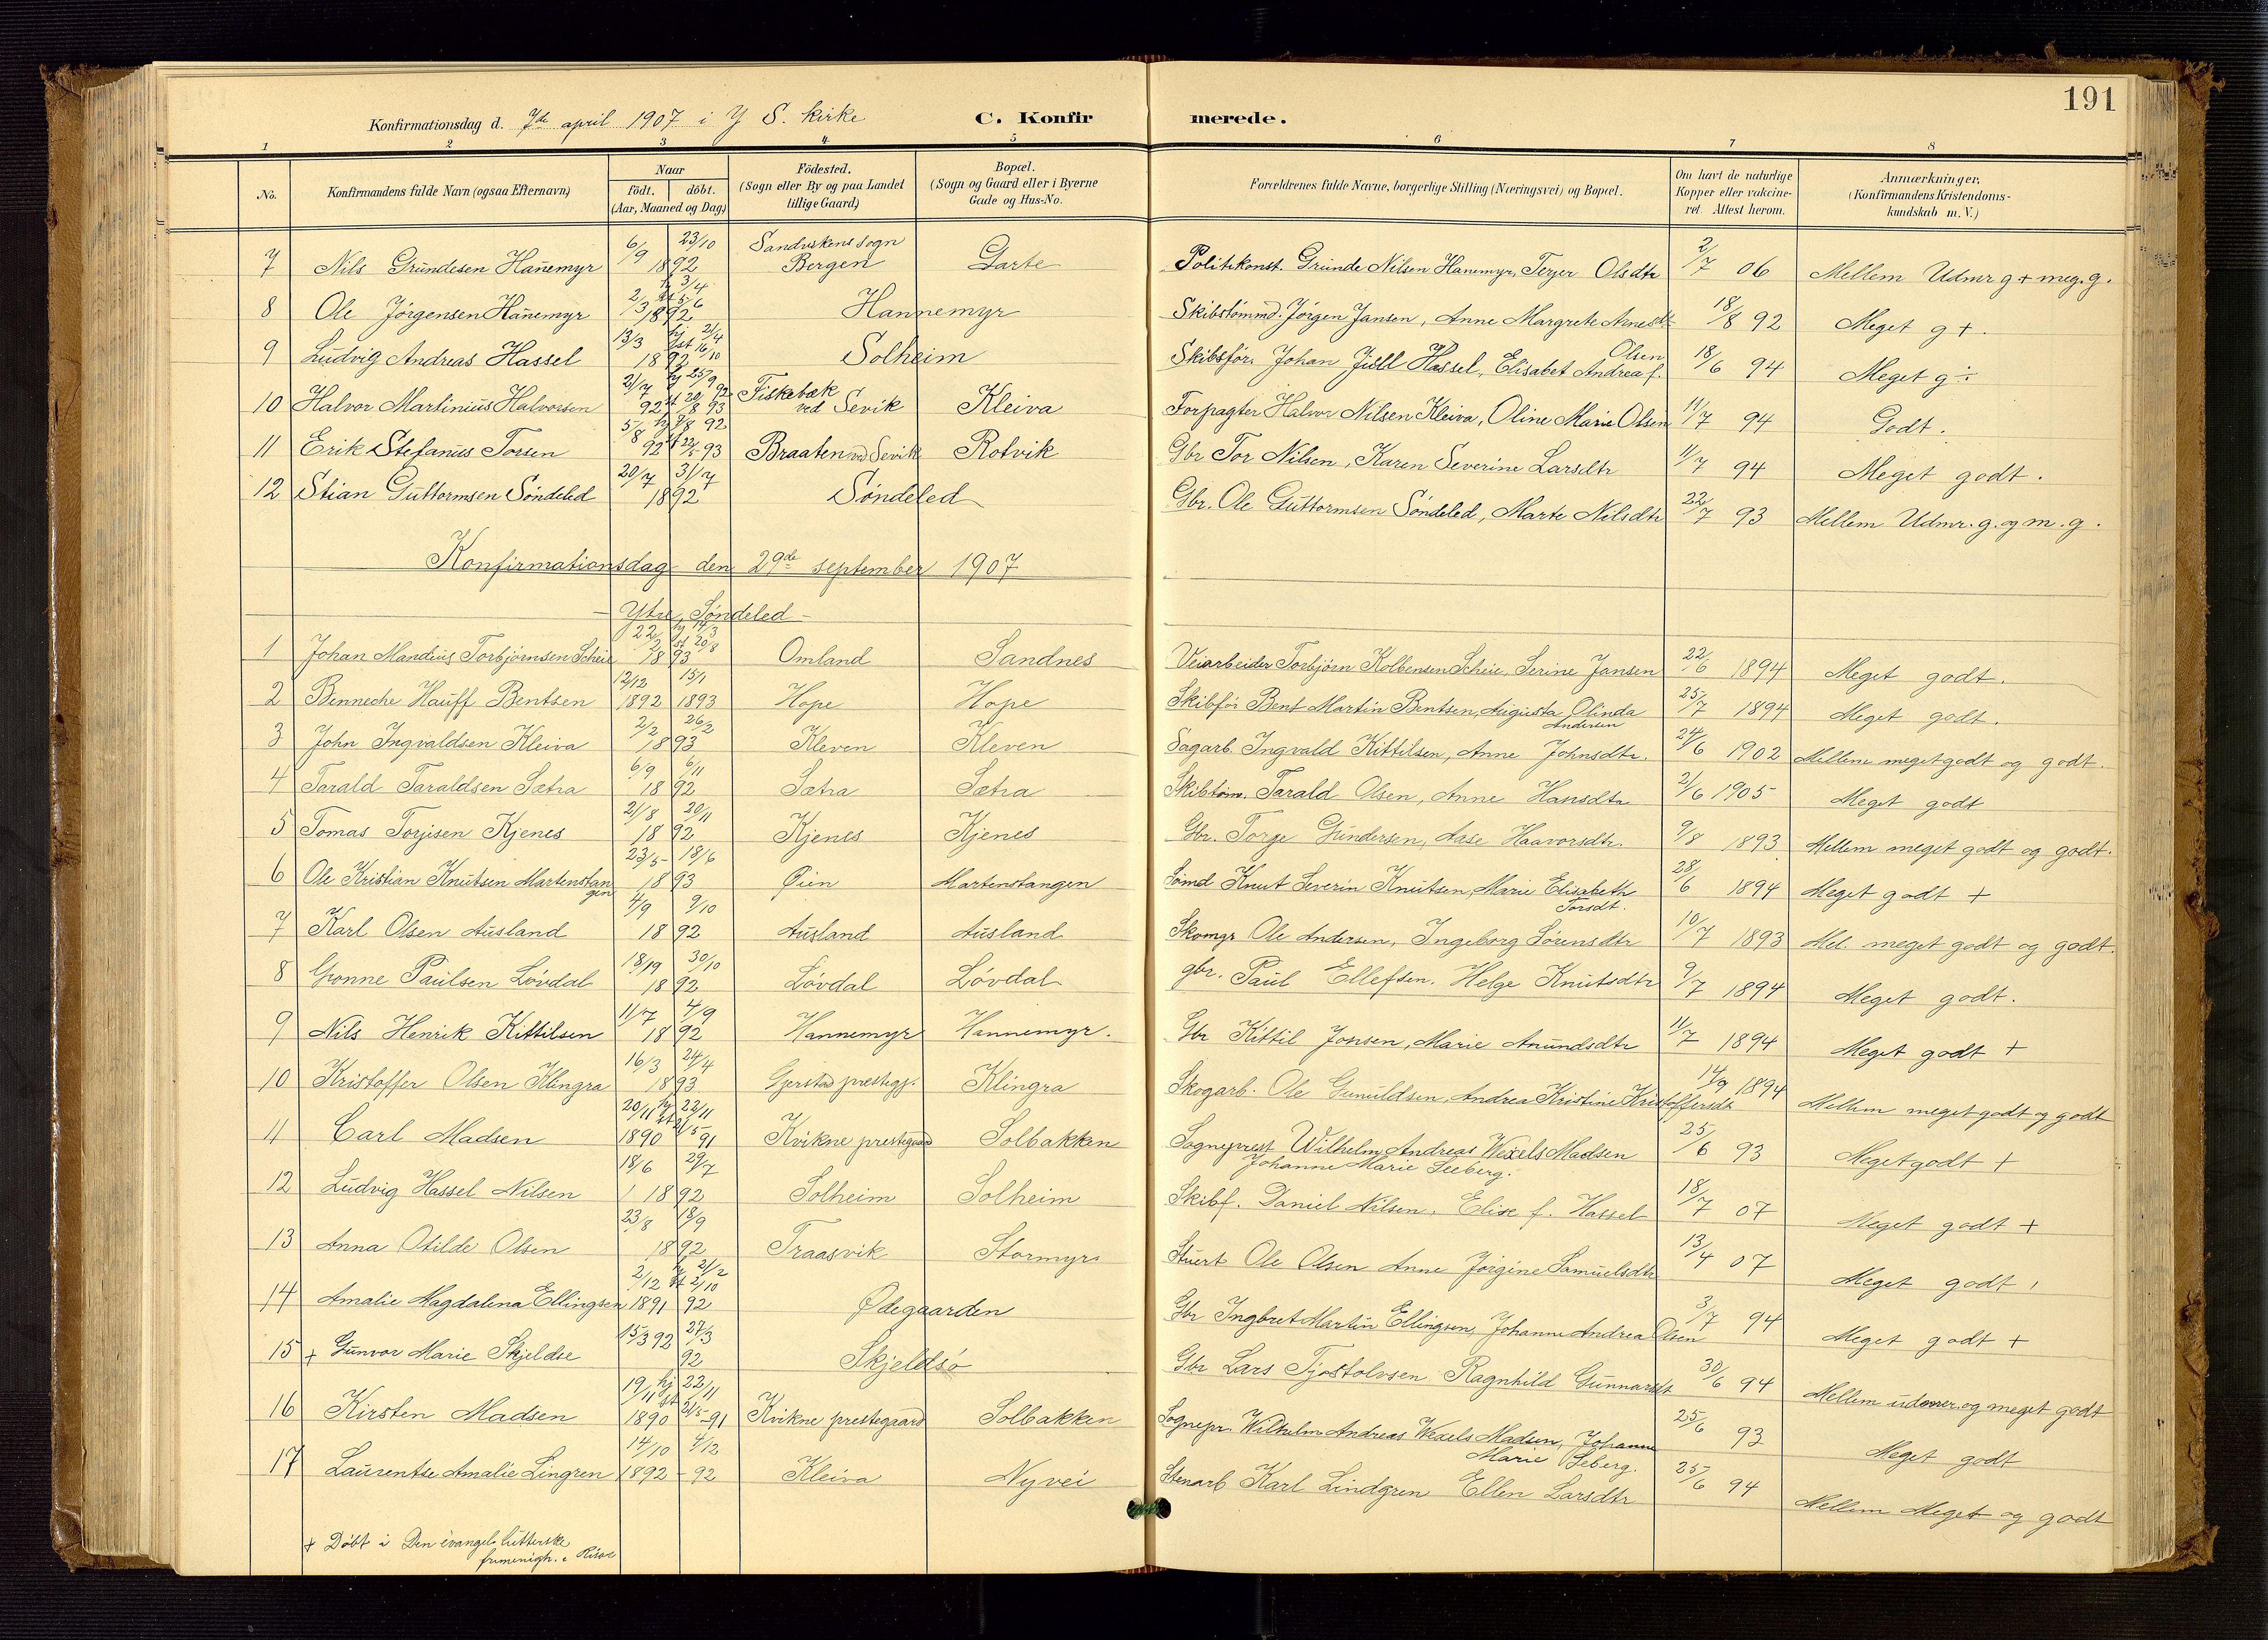 191
Konfirmationsdag d. 7de april 1907 i Y S. kirke C. Konfirmerede.
1 2 3 4 5 6 7 8
No. Konfirmandens fulde Navn (ogsaa Efternavn) Naar født. døbt. (Aar, Maaned og Dag) Födested. (Sogn eller By og paa Landet tillige Gaard) Bopæl. (Sogn og Gaard eller i Byerne Gade og Hus-No. Forældrenes fulde Navne, borgerlige Stilling (Næringsvei) og Bopæl. Om havt de naturlige Kopper eller vakcineret Attest herom. Anmærkninger, (Konfirmandens Kristendomskundskab m. V.)
7 Nils Grundesen Hanemyr 6/9 23/10 1892 Sandvikens sogn Bergen Garte Politikonst. Grunde Nilsen Hanemyr, Terjer Olsdtr 2/7 06 Mellem Udmr g + meg. g.
8 Ole Jørgensen Hanemyr 2/3 hj 3/4 st 5/6 1892 Hannemyr Skibstømmd. Jørgen Jansen, Anne Margrete Arnesdt 18/8 92 Meget g +.
9 Ludvig Andreas Hassel 13/3 hj 2/4 st 16/10 1892 Solheim Skibsfør. Johan Juell Hassel, Elisabet Andrea f. Olsen 18/6 94 Meget g ÷
10 Halvor Martinius Halvorsen 21/7 92 hj 25/9 92 st 20/8 93 Fiskebæk ved Sevik Kleiva Forpagter Halvor Nilsen Kleiva, Oline Marie Olsen 11/7 94 Godt.
11 Erik Stefanus Torsen 5/8 92 hj 7/8 92 st 22/5 93 Braaten ved Sevik Rotvik Gbr Tor Nilsen, Karen Severine Larsdtr 11/7 94 Meget godt.
12 Stian Guttormsen Søndeled 20/7 31/7 1892 Søndeled Gbr. Ole Guttormsen Søndeled, Marte Nilsdtr 22/7 93 Mellem Udmr. g. og m. g.
Konfirmationsdag den 29de september 1907
- Ytre Søndeled -
1 Johan Mandius Torbjørnsen Scheie 22/2 hj 14/3 st 20/8 1893 Omland Sandnes Veiarbeider Torbjørn Kolbensen Scheie, Serine Jansen 22/6 1894 Meget godt.
2 Benneche Hauff Bentsen 12/12 1892 15/1 1893 Hope Hope Skibfør Bent Martin Bentsen, Augusta Olinda Andersen 25/7 1894 Meget godt.
3 John Ingvaldsen Kleiva 2/2 26/2 1893 Kleven Kleven Sagarb. Ingvald Kittilsen, Anne Johnsdtr. 24/6 1902 Mellem meget godt og godt.
4 Tarald Taraldsen Sætra 6/9 6/11 1892 Sætra Sætra Skibtøm. Tarald Olsen, Anne Hansdtr 21/6 1905 Meget godt
5 Tomas Torjisen Kjenes 21/8 20/11 1892 Kjenes Kjenes Gbr. Torge Gundersen, Aase Haavorsdtr. 9/8 1893 Mellem meget godt og godt.
6 Ole Kristian Knutsen Martenstangen 23/5 18/6 1893 Øien Martenstangen Sømd Knut Severin Knutsen, Marie Elisabeth Torsdt. 28/6 1894 Meget godt +
7 Karl Olsen Ausland 4/9 9/10 1892 Ausland Ausland Skomgr Ole Andersen, Ingeborg Sørensdtr 10/7 1893 Mel. meget godt og godt.
8 Gronne Paulsen Løvdal 18/9 30/10 1892 Løvdal Løvdal gbr. Paul Ellefsen. Helge Knutsdtr 9/7 1894 Meget godt.
9 Nils Henrik Kittilsen 11/7 4/9 1892 Hannemyr Hannemyr. Gbr Kittil Jonsen, Marie Anundsdtr 11/7 1894 Meget godt +
10 Kristoffer Olsen Klingra 16/3 24/4 1893 Gjerstad prestegj. Klingra Skogarb. Ole Gunuldsen, Andrea Kristine Kristoffersdt 14/9 1894 Mellem meget godt og godt
11 Carl Madsen 20/11 1890 hj 22/11 st 21/5 91 Kvikne prestegaard Solbakken Sogneprest Wilhelm Andreas Wexels Madsen Johanne Marie Seeberg. 25/6 93 Meget godt +
12 Ludvig Hassel Nilsen 18/6 29/7 1892 Solheim Solheim Skibf. Daniel Nilsen, Elise f. Hassel 18/7 07 Meget godt +
13 Anna Otilde Olsen 23/8 18/9 1892 Traasvik Stormyr Stuert Ole Olsen Anne Jørgine Samuelsdtr 13/4 07 Meget godt
14 Amalie Magdalena Ellingsen 2/12 1891 hj 21/2 st 2/10 92 Ødegaarden Gbr Ingbret Martin Ellingsen, Johanne Andrea Olsen 3/7 94 Meget godt +
15 + Gunvor Marie Skjeldsø 15/3 92 27/3 92 Skjeldsø Gbr Lars Tjostolvsen Ragnhild Gunnarsdt 30/6 94 Mellem udmer. og meget godt
16 Kirsten Madsen 19/11 1890 hj 22/11 st 21/5 91 Kvikne prestegaard Solbakken Sognepr. Wilhelm Andreas Wexels Madsen, Johanne Marie Seberg. 25/6 93 Meget godt
17 Laurentse Amalie Lingren 14/10 1892 4/12 - 92 Kleiva Nyvei Stenarb Karl Lindgren Ellen Larsdtr 25/6 94 Mellem Meget og godt
+ Døbt i Den evangel. lutterske
frimenigh. i Risør